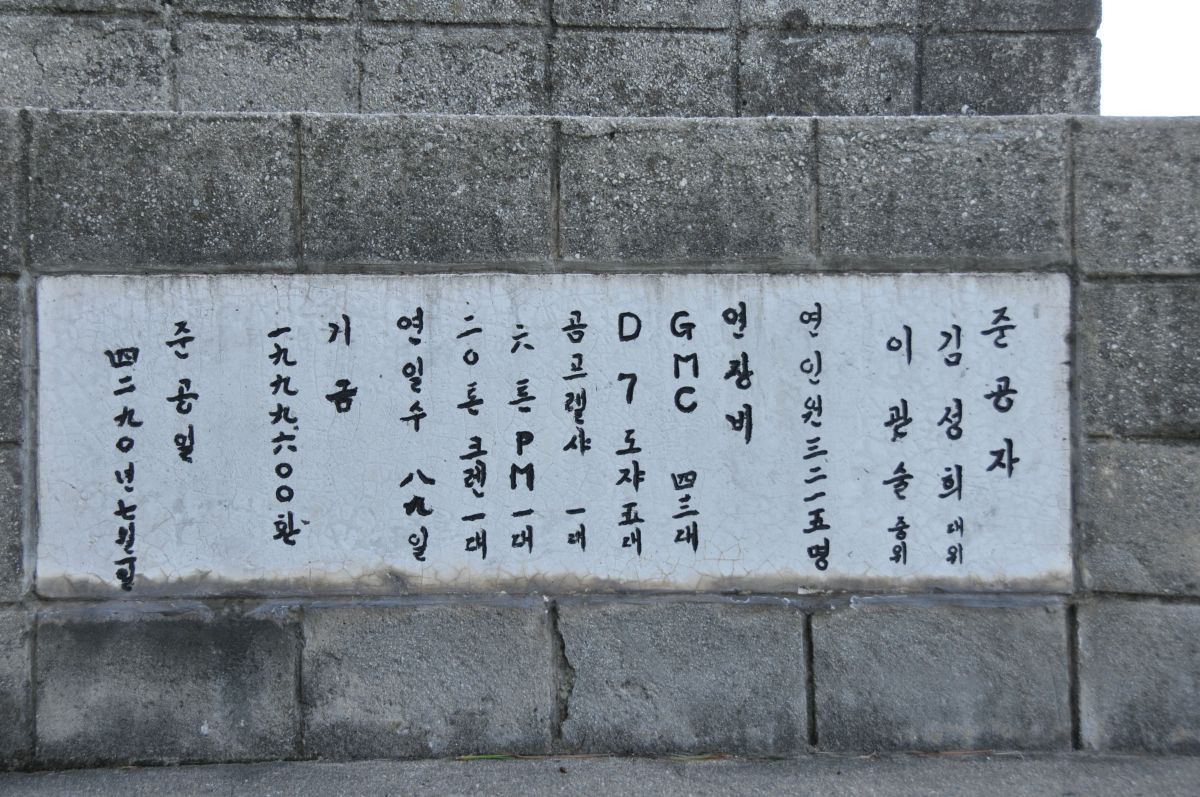 준공자
김성희 대위
이괏술 중위
연인원三二一五명
연장비
GMC 四三대
D7도쟈五대
곰프렐샤 一대
六톤PM一대
二〇톤크렌一대
연일수 八九일
기금
一九九九六〇〇환
준공일
四二九〇년七월一일